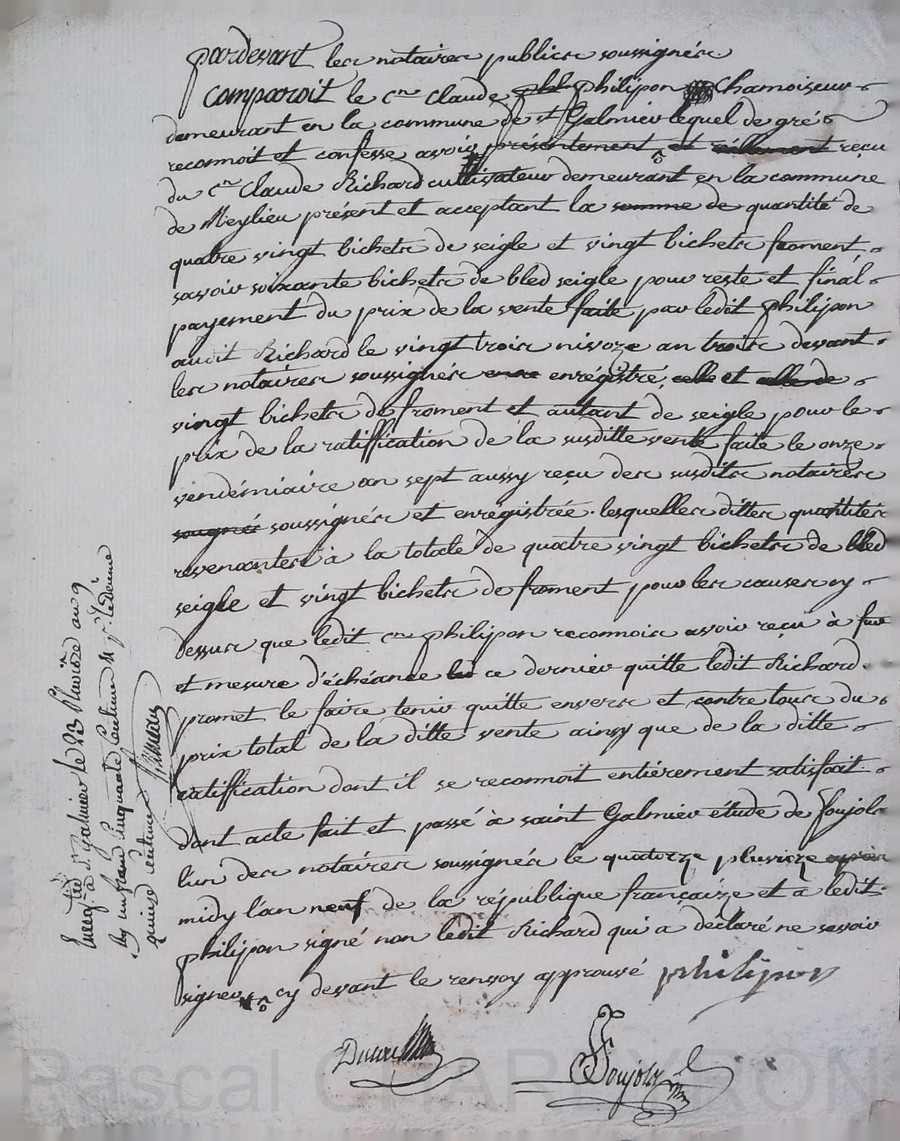 pardevant les notaires publics soussignés
comparoit le cen Claude philipon Chamoiseur
demeurant en la commune de st Galmier lequel de gré
reconnoit et confesse avoir présentement et réellement reçu
du cen Claude Richard cultivateur demeurant en la commune
de Meylieu présent et acceptant la somme de quantité de
quatre vingt bichets de seigle et vingt bichets froment,
savoir soixante bichets de bled seigle pour reste et final
payement du prix de la vente faite par ledit philipon
audit Richard le vingt trois nivoze an trois devant
les notaires soussignés enregistré, celle et celle de
vingt bichets de froment et autant de seigle pour le
prix de la ratiffication de la susditte vente faite le onze
vendémiaire an sept aussy reçu des susdits notaires
sougnés soussignés et enregistrée. lesquelles dittes quantités
revenantes à la totale de quatre vingt bichets de bled
seigle et vingt bichets de froment pour les causes cy
dessus que ledit cen philipon reconnois avoir reçu à fur
et mesure d'échéance ce dernier quitte ledit Richard
promet le faire tenir quitte envers et contre tous du
prix total de la ditte vente ainsy que de la ditte
ratiffication dont il se reconnoit entiérement satisfait
dont acte fait et passé à saint Galmier étude de Soujols
l'un des notaires soussignés le quatorze pluvioze après
midy l'an neuf de la république française et a ledit
philipon signé non ledit Richard qui a déclaré ne savoir
signer cy devant le renvoy approuvé philipon
Soujols
Enregtré à st Galmier le 23 Pluviôse an 9
Rç un franc cinquante centimes
quinze centimes
Rascal CHAREYRON